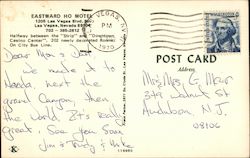 EASTWARD HO MOTEL
1206 Las Vegas Blvd. So.
Las Vegas, Nevada 89104
702 - 385-2812
Halfway between the "Strip" and "Downtown
Casino Center". 210 newly decorated Rooms.
On City Bus Line.
VEGAS, N
PM
1970
POST CARD
Address
Dear Mom & Dad
we made it
Nevada, next the
grand Canyon, then
the World. It's real
great. See you soon
Jim & Trudy & Mike
Mr & Mrs G Meier
329 Walnut St
Audubon, N.J.
08106